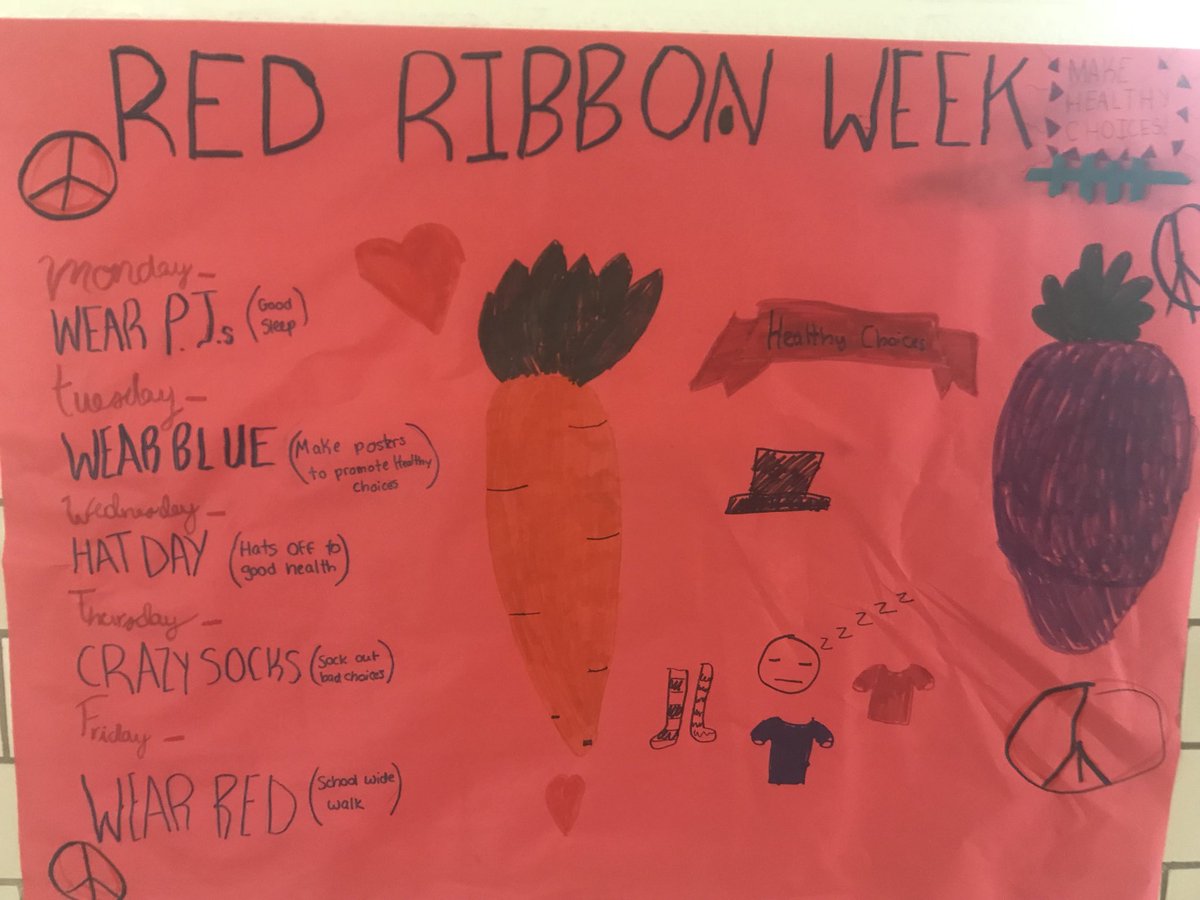 RED RIBBON WEEK
MAKE
HEALTHY
CHOICES!
Monday-
WEAR P.J.s (Good
Sleep)
Tuesday-
WEAR BLUE (Make posters
to promote Healthy
Choices)
Wednesday-
HAT DAY (Hats OFF to
good health)
Thursday-
CRAZY SOCKS (Sock out
bad choices)
Friday-
WEAR RED (School wide
walk)
Healthy Choices
z z z z z z